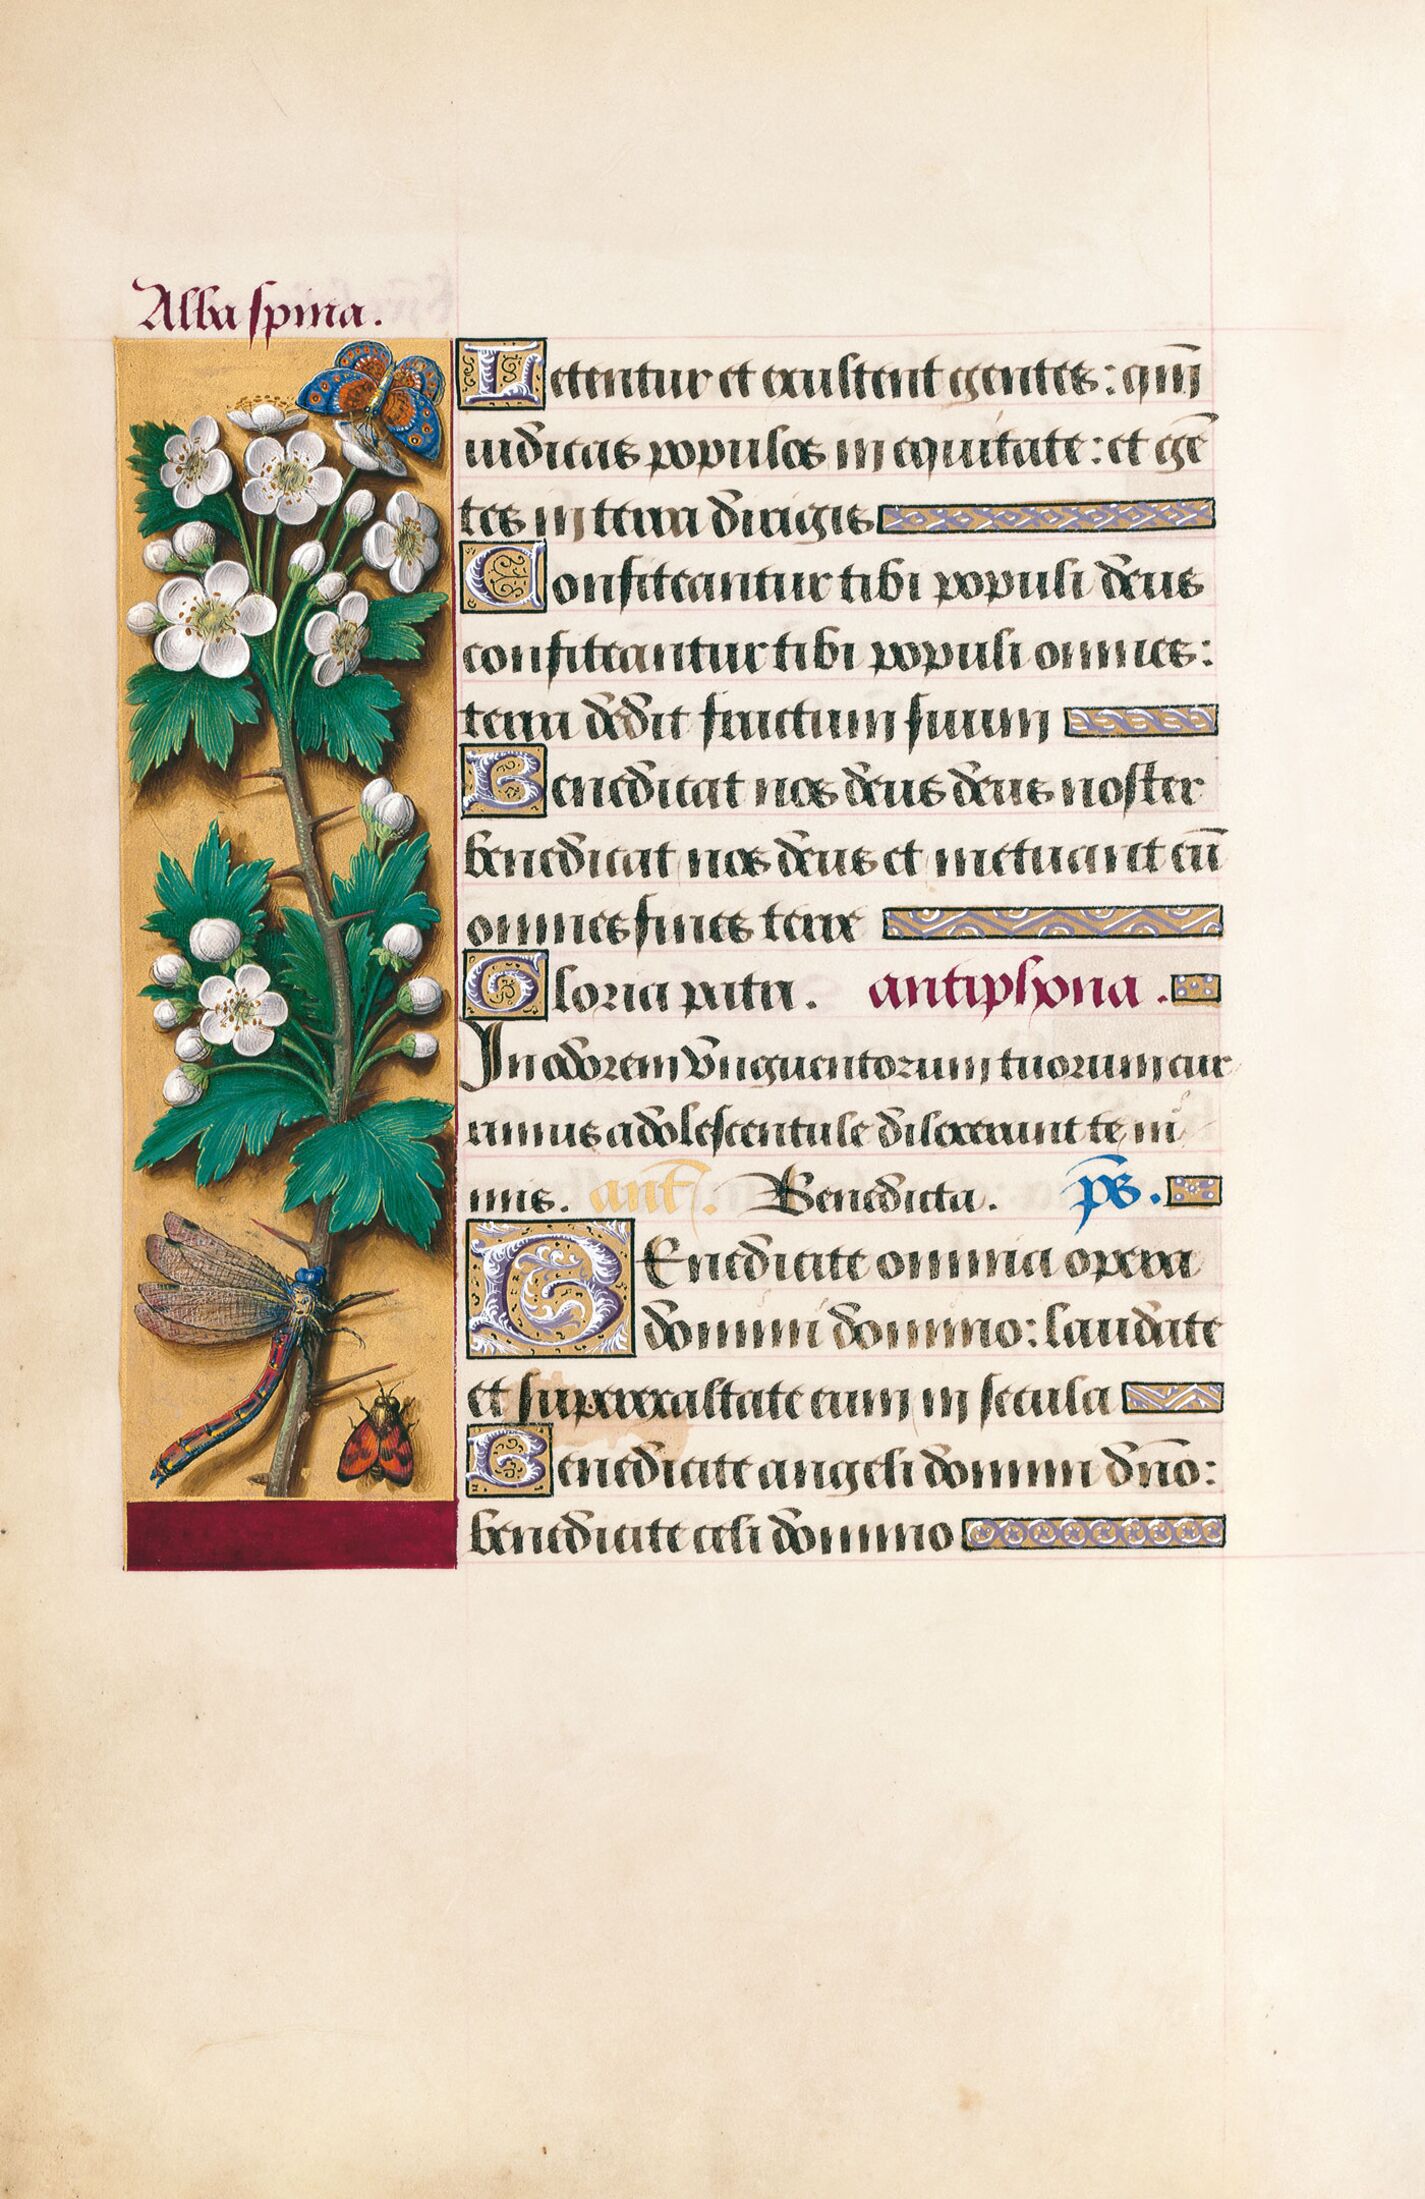 Alba spina.
Letentur et exultent gentes: qm̄
iudicas populos in equitate: et gē
tes in terra dirigis
Confiteantur tibi populi deus
confiteantur tibi populi omnes:
terra dedit fructum suum
Benedicat nos deus deus noster
benedicat nos deus et metuant eū
omnes fines terre
Gloria patri. antiphona.
In odorem vnguentorum tuorum cur
rimus adolescentule dilexerunt te ni
mis. ant̄. Benedicta. p̄s.
BEnedicite omnia opera
domini domino: laudate
et superexaltate eum in secula
Benedicite angeli domini dn̄o:
benedicite celi domino